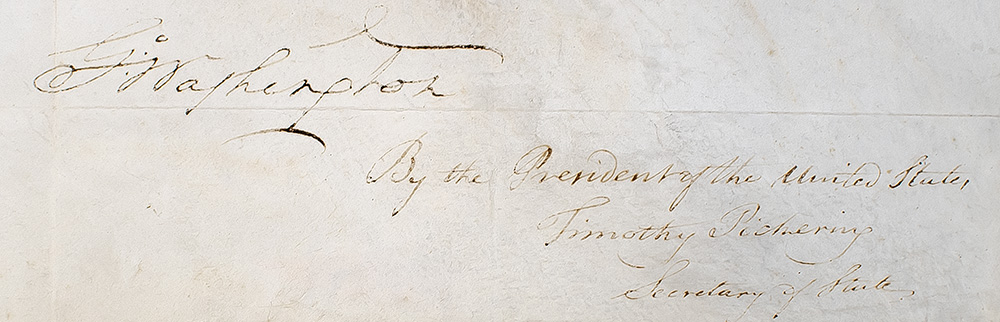 G:º Washington
By the President of the United States,
Timothy Pickering
Secretary of State